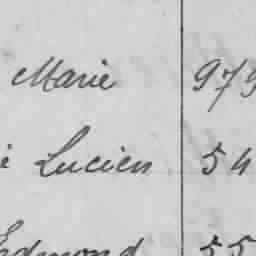 Marie 979
Lucien 54
Edmond 55